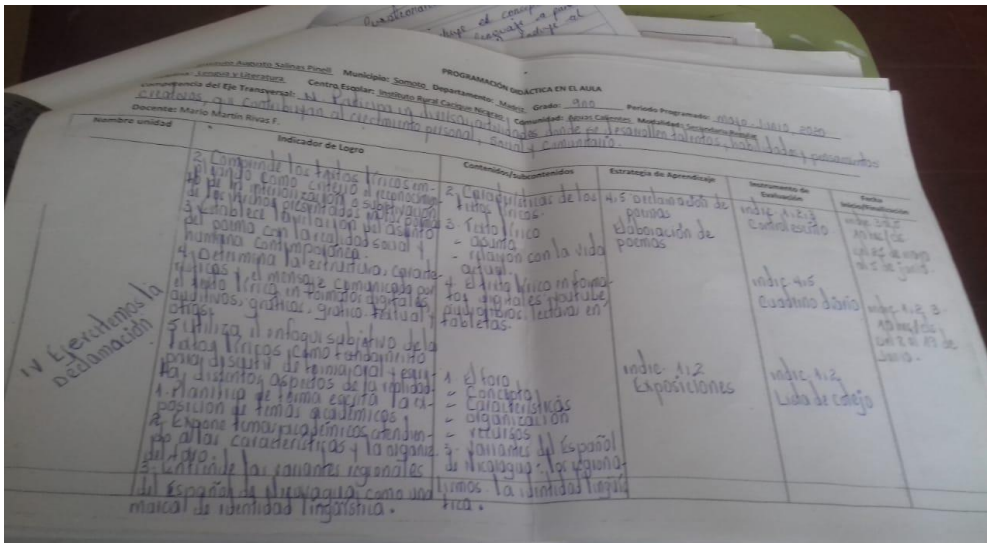 PROGRAMACIÓN DIDÁCTICA EN EL AULA
Augusto Salinas Pinell Municipio: Somoto Departamento: Madriz Grado: 9no Periodo Programado: mayo-Junio 2020
Lengua y Literatura Centro Escolar: Instituto Rural Cacique Nicarao Comunidad: Aguas Calientes Modalidad: Secundaria
Competencia del Eje Transversal: Participa en diversas actividades donde se desarrollen talentos, habilidades y pensamientos
creativos, que contribuyan al crecimiento personal, social y comunitario.
Docente: Mario Martin Rivas F.
Nombre unidad
Indicador de Logro
Contenidos/subcontenidos
Estrategia de Aprendizaje
Instrumento de
Evaluación
Fecha
Inicio/finalización
IV Ejercitemos la
Declamación
2. Comprende los textos líricos em-
pleando como criterio el reconocimie
de la interiorización o subjetivación
de los hechos presentados
3. Establece la relación del asunto
del poema con la realidad social y
humana contemporánea.
4. Determina la estructura, caracte-
rísticas y el mensaje comunicado por
el texto lírico en formatos digitales
auditivos, gráficos, gráfico textual y
otros.
5. Utiliza el enfoque subjetivo de los
textos líricos como fundamento
para discutir de forma oral y escri-
ta, distintos aspectos de la realidad.
1. Planifica de forma escrita la ex-
posición de temas académicos.
2. Expone temas académicos atendien-
do a las características y la organiz.
del foro.
3. Entiende las variantes regionales
del Español de Nicaragua como una
marca de identidad lingüística.
2. Características de los
textos líricos.
3. Texto lírico
- asunto
- relación con la vida
actual.
4. El texto lírico en forma-
tos digitales youtube,
audiolibros, lecturas en
tabletas.
1. El foro
- Concepto
- Características
- organización
- recursos
3. Variantes del Español
de Nicaragua: los regiona-
lismos. La identidad lingüís
tica.
4.5 Declamación de
poemas
Elaboración de
poemas
indic. 1.2
Exposiciones
indic. 1.2.3
Control escrito
indic. 4.5
Cuaderno diario
indic. 1.2.
Lista de cotejo